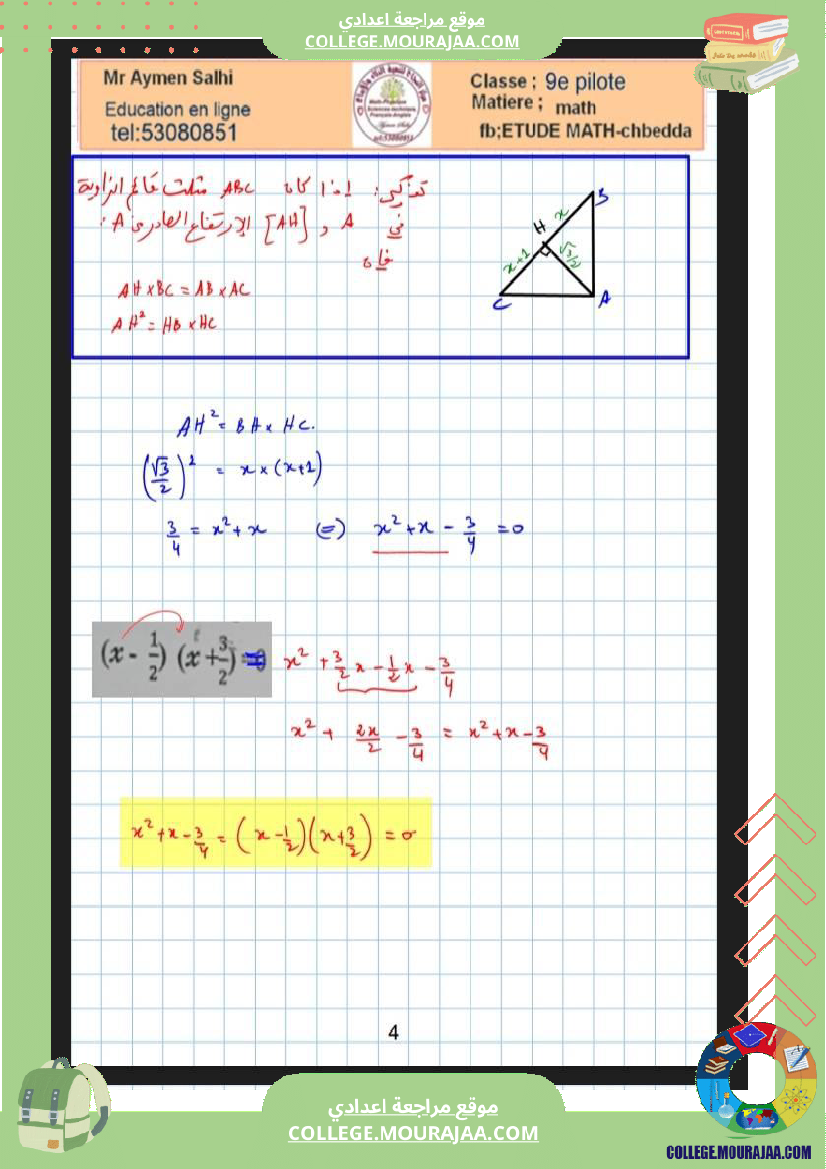 موقع مراجعة اعدادي
COLLEGE.MOURAJAA.COM
Mr Aymen Salhi
Education en ligne
tel:53080851
Classe ; 9e pilote
Matiere ; math
fb;ETUDE MATH-chbedda
تذكير: إذا كان ABC مثلث قائم الزاوية
في A و [AH] الإرتفاع الصادر من A
فإن
AH × BC = AB × AC
AH² = HB × HC
B
x
H
x+1
√3/2
C
A
AH² = BH × HC.
(√3/2)² = x × (x+1)
3/4 = x² + x (=) x² + x - 3/4 = 0
(x - 1/2) (x + 3/2) = x² + 3/2 x - 1/2 x - 3/4
x² + 2x/2 - 3/4 = x² + x - 3/4
x² + x - 3/4 = (x - 1/2)(x + 3/2) = 0
4
موقع مراجعة اعدادي
COLLEGE.MOURAJAA.COM
COLLEGE.MOURAJAA.COM